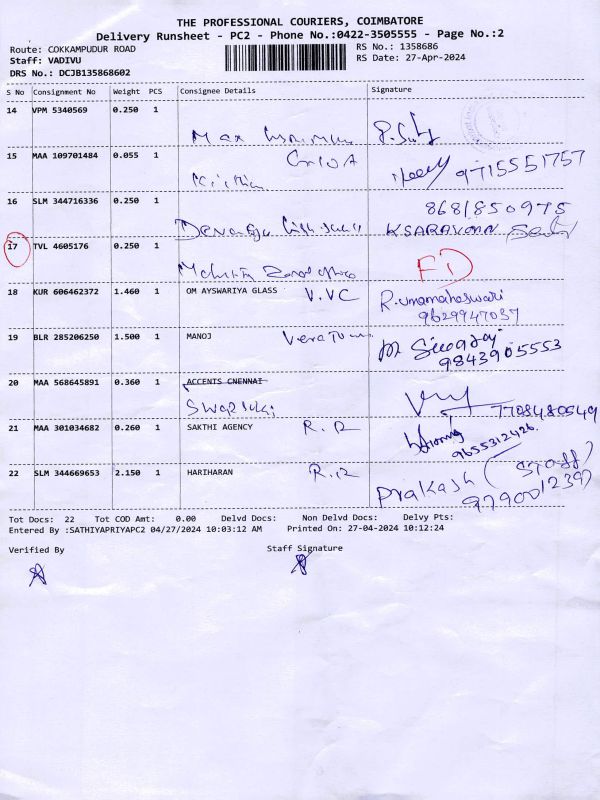 THE PROFESSIONAL COURIERS, COIMBATORE
Delivery Runsheet - PC2 - Phone No.:0422-3505555 - Page No.:2
Route: COKKAMPUDUR ROAD
RS No.: 1358686
Staff: VADIVU
RS Date: 27-Apr-2024
DRS No.: DCJB135868602
S No Consignment No Weight PCS Consignee Details Signature
14 VPM 5340569 0.250 1
Max
15 MAA 109701484 0.055 1
9715551757
16 SLM 344716336 0.250 1
8681850975
K SARAVANAN
17 TVL 4605176 0.250 1
FD
18 KUR 606462372 1.460 1 OM AYSWARIYA GLASS V.VC R.umamaheswari
9629947037
19 BLR 285206250 1.500 1 MANOJ
9843905553
20 MAA 568645891 0.360 1 ACCENTS CNENNAI
7708480549
21 MAA 301034682 0.260 1 SAKTHI AGENCY R.R
9655312426
22 SLM 344669653 2.150 1 HARIHARAN R.R Prakash (Staff)
Tot Docs: 22 Tot COD Amt: 0.00 Delvd Docs: Non Delvd Docs: Delvy Pts:
Entered By :SATHIYAPRIYAPC2 04/27/2024 10:03:12 AM Printed On: 27-04-2024 10:12:24
Verified By Staff Signature